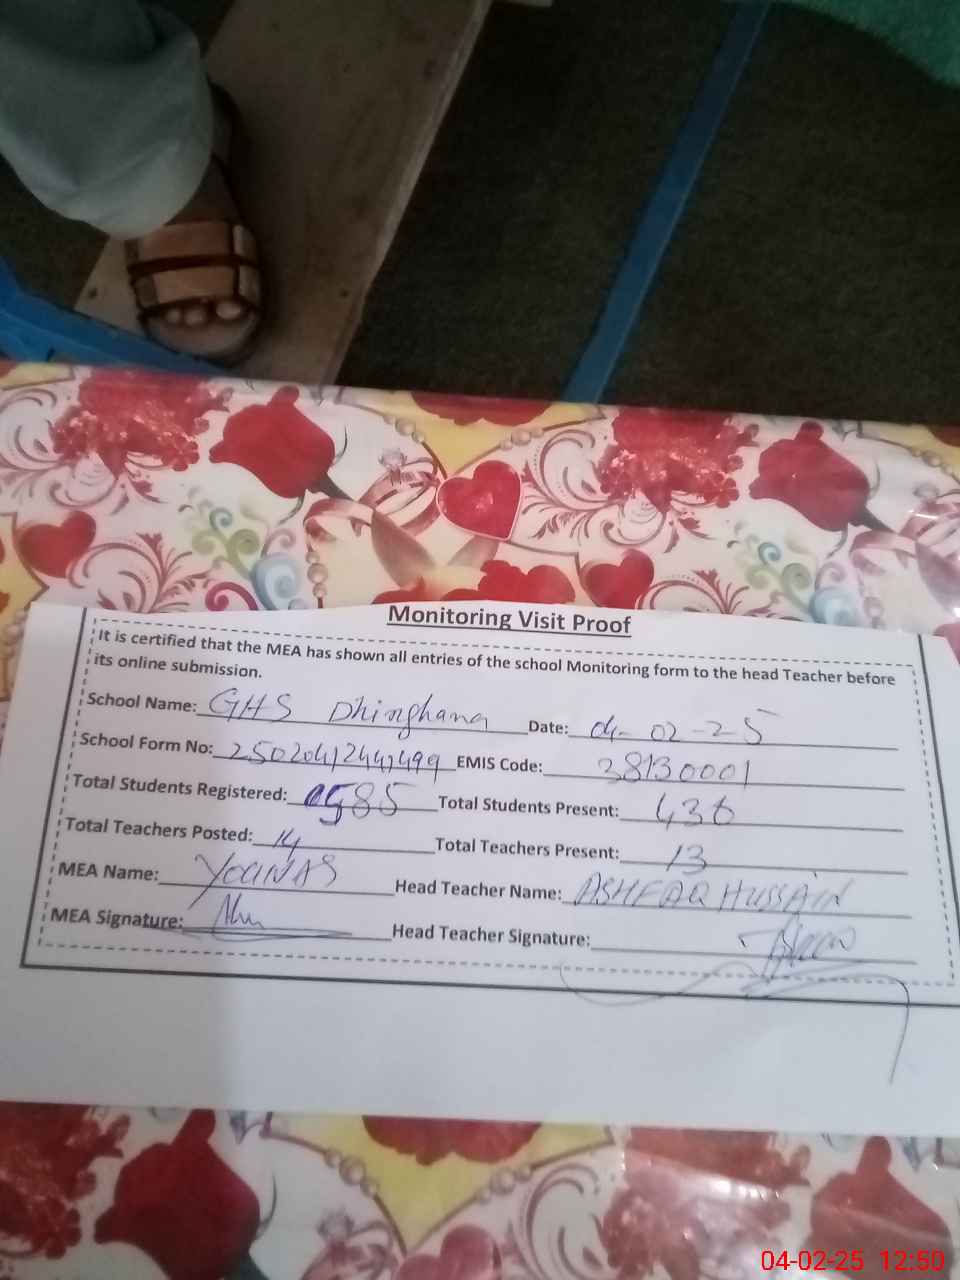 Monitoring Visit Proof
It is certified that the MEA has shown all entries of the school Monitoring form to the head Teacher before
its online submission.
School Name: GHS Dhinghana Date: 04-02-25
School Form No: EMIS Code: 38130001
Total Students Registered: 585 Total Students Present: 436
Total Teachers Posted: 14 Total Teachers Present: 13
MEA Name: YOUNAS Head Teacher Name: ASHFAQ HUSSAIN
MEA Signature: Head Teacher Signature:
04-02-25 12:50